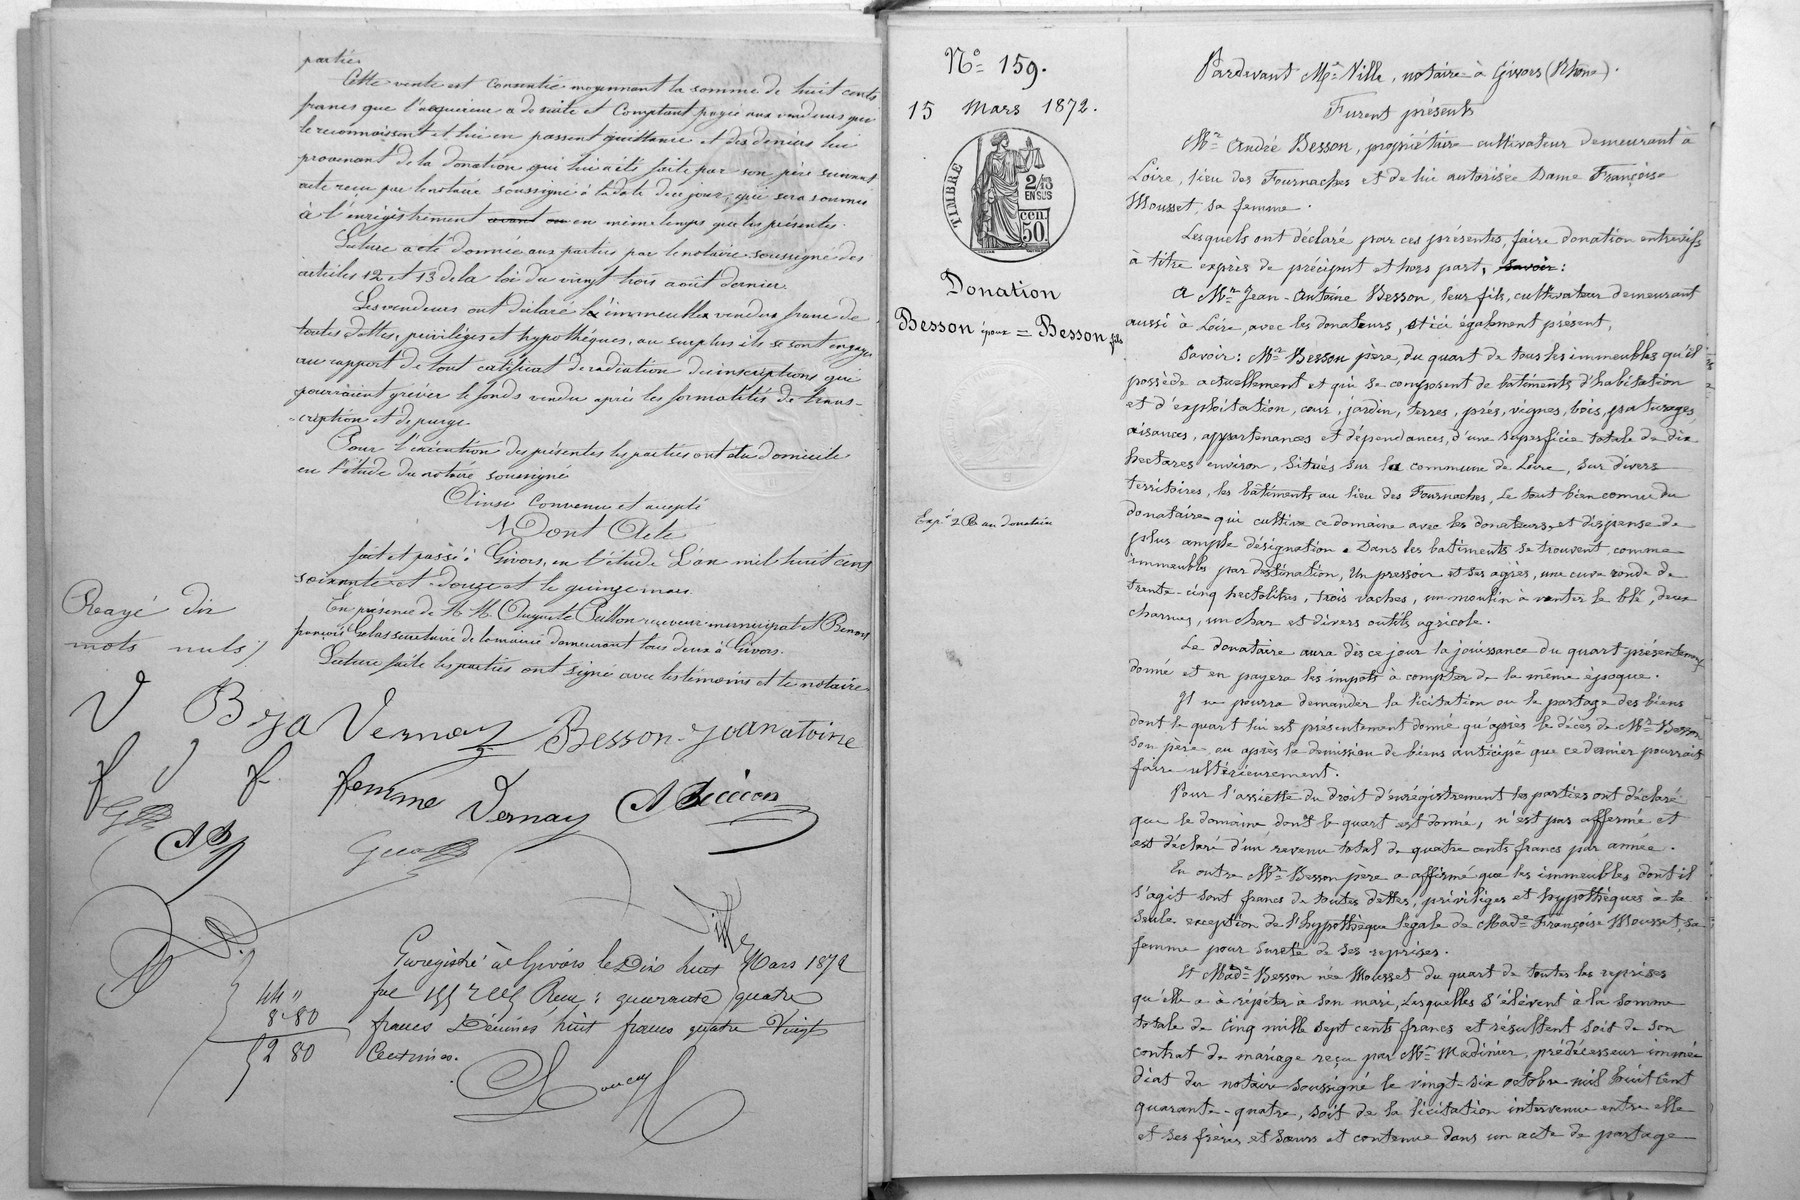 partie
Cette vente est consentie moyennant la somme de huit cents
francs que l'acquéreur a de suite et comptant payée aux vendeurs qui
le reconnaissent et lui en passent quittance et des deniers lui
provenant de la donation qui lui a été faite par son père suivant
acte reçu par le notaire soussigné à la date de ce jour, qui sera soumis
à l'enregistrement avant ou en même temps que les présentes.
Lecture a été donnée aux parties par le notaire soussigné des
articles 12 et 13 de la loi du vingt trois août dernier.
Les vendeurs ont déclaré l'immeuble vendu franc de
toutes dettes, privilèges et hypothèques, au surplus ils se sont engagés
au rapport de tout certificat de radiation des inscriptions qui
pourraient gréver le fonds vendu après les formalités de trans-
-cription et de purge
Pour l'exécution des présentes les parties ont élu domicile
en l'étude du notaire soussigné
Ainsi convenu et accepté
Dont Acte
fait et passé à Givors, en l'étude L'an mil huit cent
soixante et douze et le quinze mars
En présence de M.M. Auguste receveur municipal et Benoit
françois secrétaire de la mairie demeurant tous deux à Givors.
Lecture faite les parties ont signé avec les témoins et le notaire
Rayé dix
mots nuls
V B J a Vernay Besson Jean antoine
f V f femme Vernay
Enregistré à Givors le Dix huit Mars 1872
Reçu : quarante quatre
francs Décimes huit francs quatre Vingt
Centimes.
44 "
8-80
52 80
N° 159.
15 Mars 1872.
TIMBRE
2/10
EN SUS
cen.
50.
Donation
Besson époux = Besson fils
Exp. 2 R au donataire
Pardevant Me Ville, notaire à Givors (Rhône).
Furent présents
Mr André Besson, propriétaire cultivateur demeurant à
Loire, lieu des Fournaches et de lui autorisée Dame Françoise
Mousset, sa femme.
Lesquels ont déclaré par ces présentes, faire donation entrevifs
à titre exprès de préciput et hors part, savoir:
A Mr Jean-Antoine Besson, leur fils, cultivateur demeurant
aussi à Loire, avec les donateurs, et ici également présent,
Savoir: Mr Besson père, du quart de tous les immeubles qu'il
possède actuellement et qui se composent de batiments d'habitation
et d'exploitation, cour, jardin, terres, prés, vignes, bois, paturages,
aisances, appartenances et dépendances, d'une superficie totale de dix
hectares environ, situés sur la commune de Loire, sur divers
territoires, les bâtiments au lieu des Fournaches, Le tout bien connu du
donataire qui cultive ce domaine avec les donateurs et dispense de
plus ample désignation. Dans les batiments se trouvent, comme
immeubles par destination, Un pressoir et ses agrès, une cuve ronde de
trente-cinq hectolitres, trois vaches, un moulin à venter le blé, deux
charrues, un char et divers outils agricole.
Le donataire aura dès ce jour la jouissance du quart présentement
donné et en payera les impots à compter de la même époque.
Il ne pourra demander la licitation ou le partage des biens
dont le quart lui est présentement donné qu'après le décès de Mr Besson
son père, ou après la démission de biens anticipée que ce dernier pourrait
faire ultérieurement.
Pour l'assiette du droit d'enrégistrement les parties ont déclaré
que le domaine dont le quart est donné, n'est pas affermé et
est déclaré d'un revenu total de quatre cents francs par année.
En outre Mr Besson père a affirmé que les immeubles dont il
s'agit sont francs de toutes dettes, privilèges et hypothèques à la
seule exception de l'hypothèque légale de Made Françoise Mousset, sa
femme pour sureté de ses reprises.
Et Made Besson née Mousset du quart de toutes les reprises
qu'elle a à répéter à son mari, Lesquelles s'élèvent à la somme
totale de Cinq mille sept cents francs et résultent soit de son
contrat de mariage reçu par Me Madinier, prédécesseur immé
diat du notaire soussigné le vingt-six octobre mil huit cent
quarante-quatre, soit de la licitation intervenue entre elle
et ses frères et sœurs et contenue dans un acte de partage